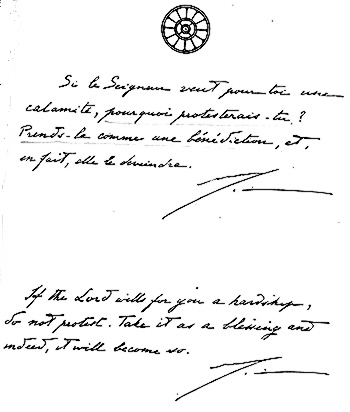 Si le Seigneur veut pour toi une
calamité, pourquoi protesterais-tu?
Prends-le comme une bénédiction, et,
en fait, elle le deviendra.
If the Lord will for you a hardship,
do not protest. Take it as a blessing and
indeed, it will become so.